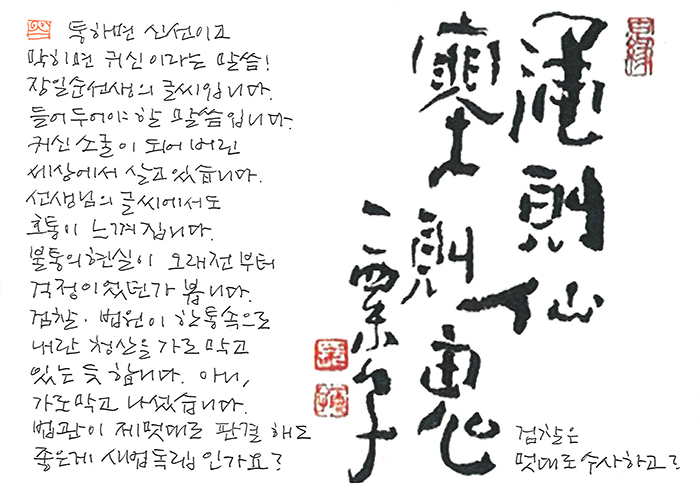 통하면 신선이고
막히면 귀신이라는 말씀!
장일순선생의 글씨입니다.
들어두어야 할 말씀입니다.
귀신 소굴이 되어 버린
세상에서 살고 있습니다.
선생님의 글씨에서도
호통이 느껴집니다.
불통의현실이 오래전부터
걱정이었던가 봅니다.
검찰·법원이 한통속으로
내란 청산을 가로 막고
있는 듯 합니다. 아니,
가로막고 나섰습니다.
법관이 제멋대로 판결 해도
좋은게 새법독립 인가요?
通則仙
塞則鬼
一粟子
검찰은
멋대로 수사하고?